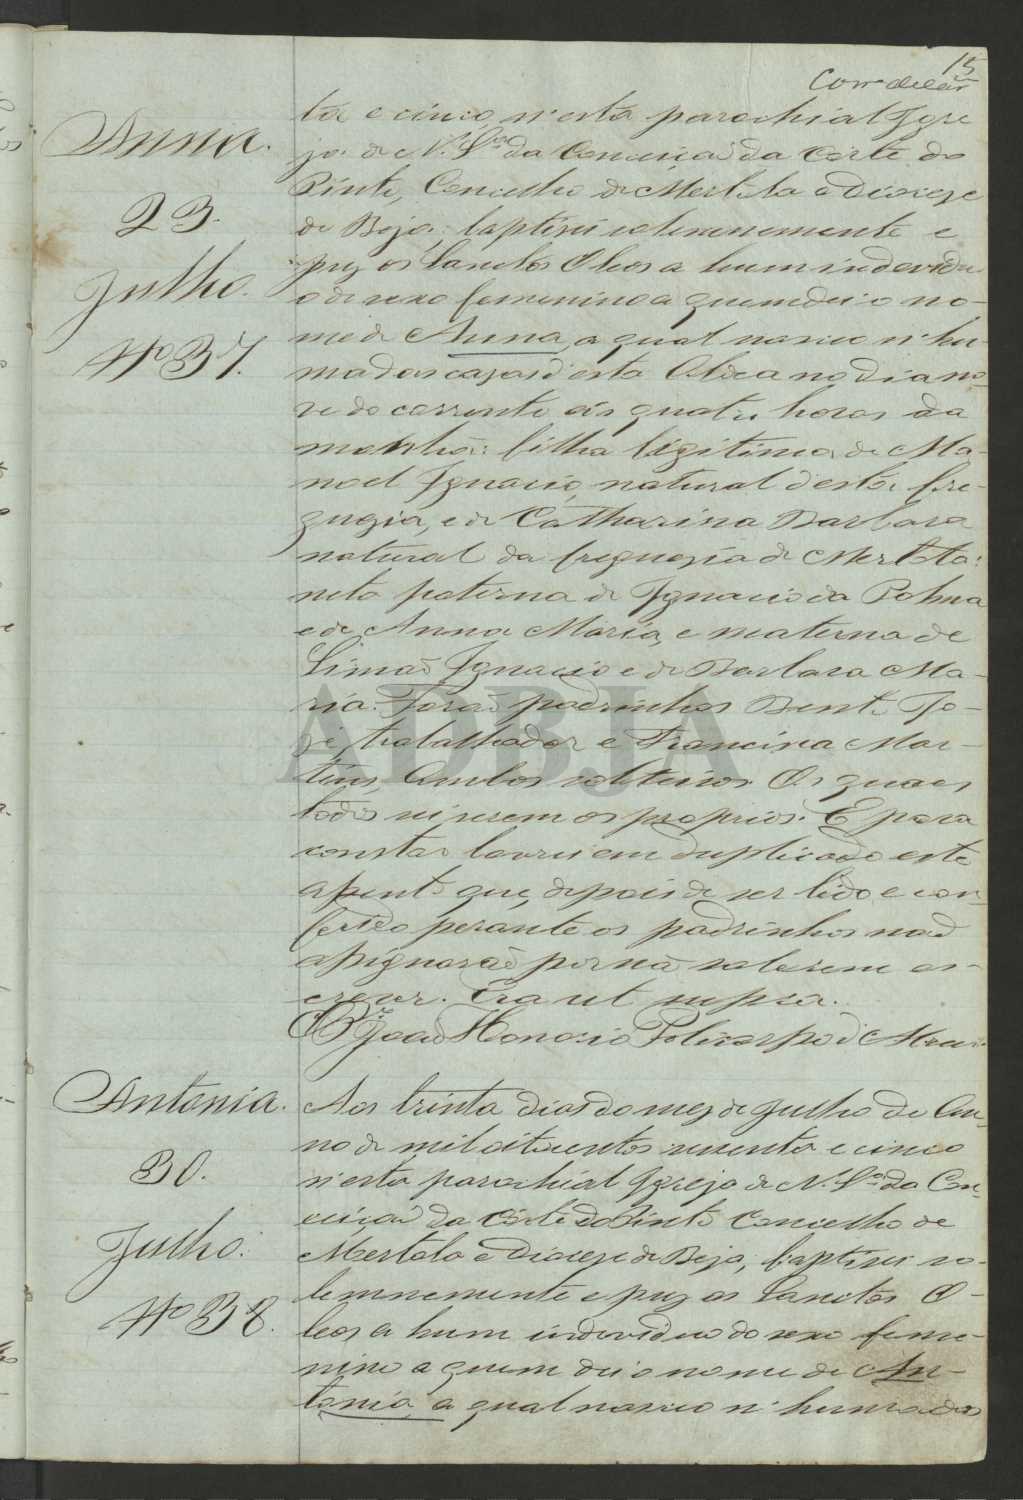 15
Anna.
23.
Julho.
Nº 37.
ta e cinco, n'esta parochial Igre
ja de N. Srª da Conceiçaõ da Corte do
Pinto, Concelho de Mertola e Diocese
de Beja, baptisei solemnemente e
puz os Sanctos Oleos a hum individu
o do sexo femenino a quem dei o no-
me de Anna, a qual nasceo n'hu-
ma das cazas d'esta Aldea no dia no-
ve do corrente ás quatro horas da
manhã: filha legitima de Ma-
noel Ignacio, natural d'esta fre-
guezia, e de Catharina Barbara
natural da freguezia de Mertola:
neta paterna de Ignacio da Palma
e de Anna Maria, e materna de
Simaõ Ignacio e de Barbara Ma-
ria. Foraõ padrinhos Bento Jo-
ze, trabalhador e Francisca Mar-
tins, Ambos solteiros. Os quaes
todos sei serem os proprios. E para
constar lavrei em duplicado este
assento que, depois de ser lido e con-
ferido perante os padrinhos naõ
assignaraõ por naõ saberem es-
crever. Era ut supra.
João Honorio Policarpo d'
Antonia.
30.
Julho.
Nº 38.
Aos trinta dias do mez de Julho do An-
no de mil oitocentos sessenta e cinco
n'esta parochial Igreja de N. Srª da Con-
ceiçaõ da Corte do Pinto Concelho de
Mertola e Diocese de Beja, baptisei so-
lemnemente e puz os Sanctos O-
leos a hum individuo do sexo feme-
nino a quem dei o nome de An-
tonia, a qual nasceo n'huma das
ADBJA